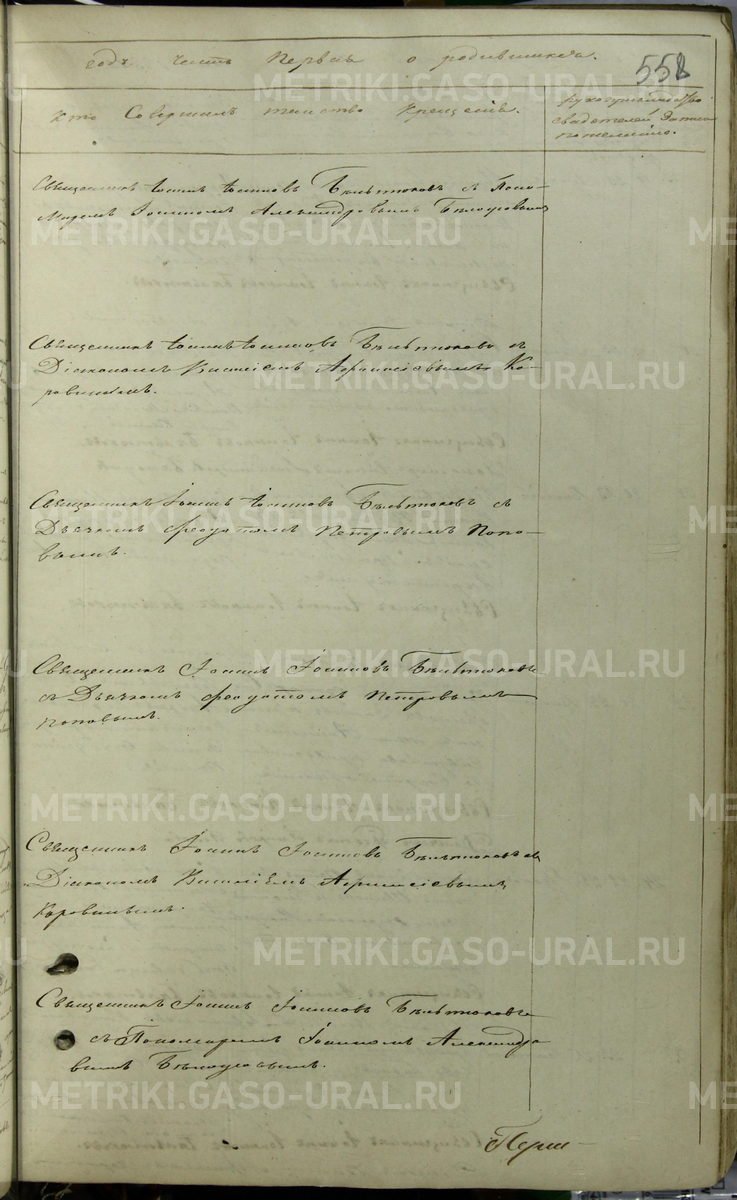 годъ часть Первая о родившихся.
558
Кто Совершилъ таинство Крещенія.
рукоприкладство
свидетелей записи
по желанію.
Священникъ Іоаннъ Іоанновъ Бѣльтюковъ съ Поно-
маремъ Іоанномъ Александровымъ Бѣлоусовымъ
Священникъ Іоаннъ Іоанновъ Бѣльтюковъ съ
Діакономъ Василіемъ Ко-
ровинымъ.
Священникъ Іоаннъ Іоанновъ Бѣльтюковъ съ
Дьячкомъ Феодотомъ Петровымъ Попо-
вымъ.
Священникъ Іоаннъ Іоанновъ Бѣльтюковъ
съ Дьячкомъ Феодотомъ Петровымъ
Поповымъ.
Священникъ Іоаннъ Іоанновъ Бѣльтюковъ съ
Діакономъ Василіемъ
Коровинымъ.
Священникъ Іоаннъ Іоанновъ Бѣльтюковъ
съ Пономаремъ Іоанномъ Александро
вымъ Бѣлоусовымъ.
METRIKI.GASO-URAL.RU